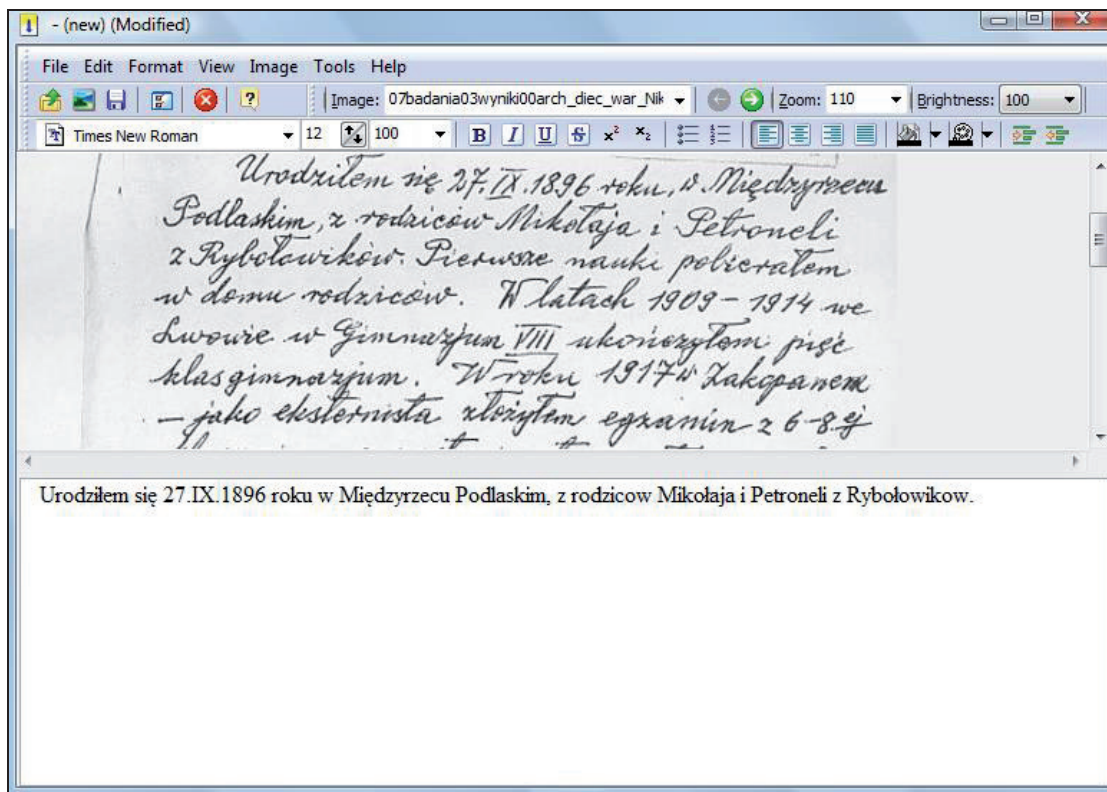 - (new) (Modified)
File Edit Format View Image Tools Help
Image: 07badania03wyniki00arch_diec_war_Nik Zoom: 110 Brightness: 100
Times New Roman 12 100 B I U S x² x₂
Urodziłem się 27.IX.1896 roku, w Międzyrzecu
Podlaskim, z rodziców Mikołaja i Petroneli
z Rybołowików. Pierwsze nauki pobierałem
w domu rodziców. W latach 1909 – 1914 we
Lwowie w Gimnazjum VIII ukończyłem pięć
klas gimnazjum. W roku 1917 w Zakopanem
– jako eksternista złożyłem egzamin z 6-8.ej
Urodziłem się 27.IX.1896 roku w Międzyrzecu Podlaskim, z rodzicow Mikołaja i Petroneli z Rybołowikow.